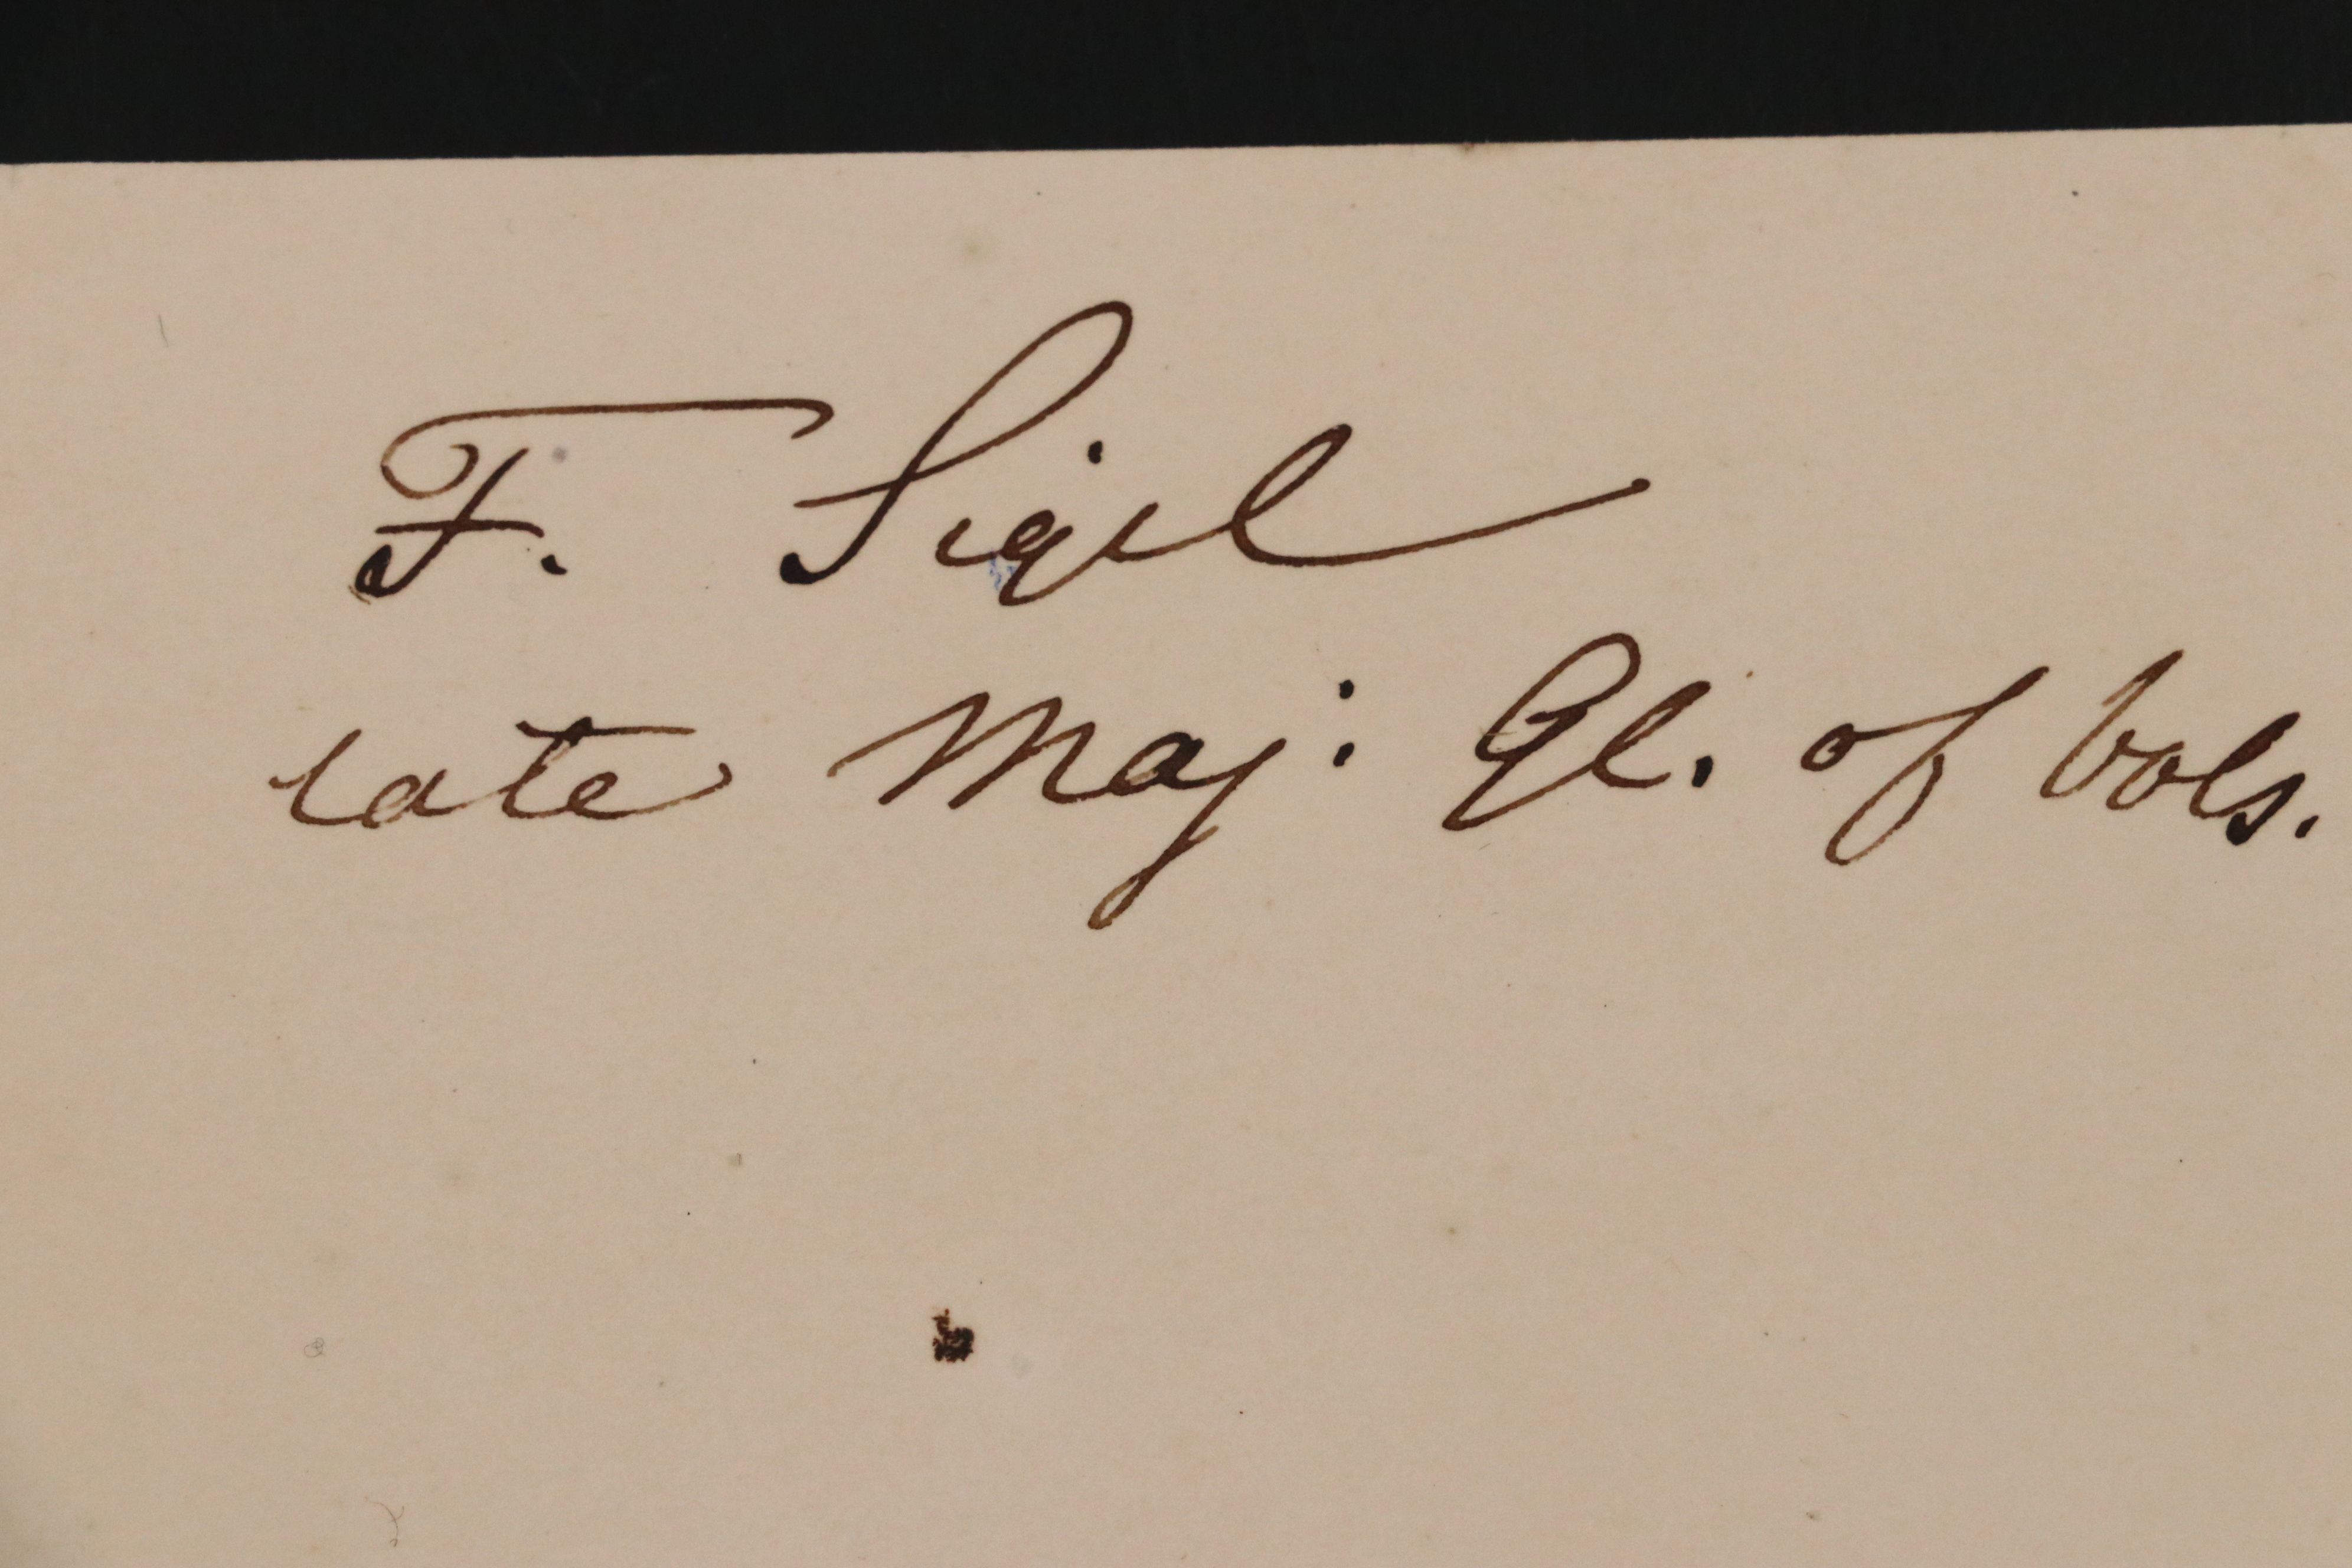 F. Sigel
late Maj: Gl. of Vols.